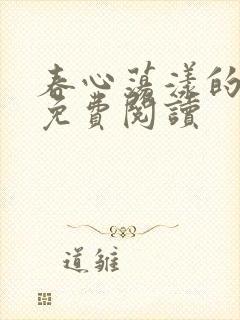 春心蕩漾的
免費閱讀
道雛